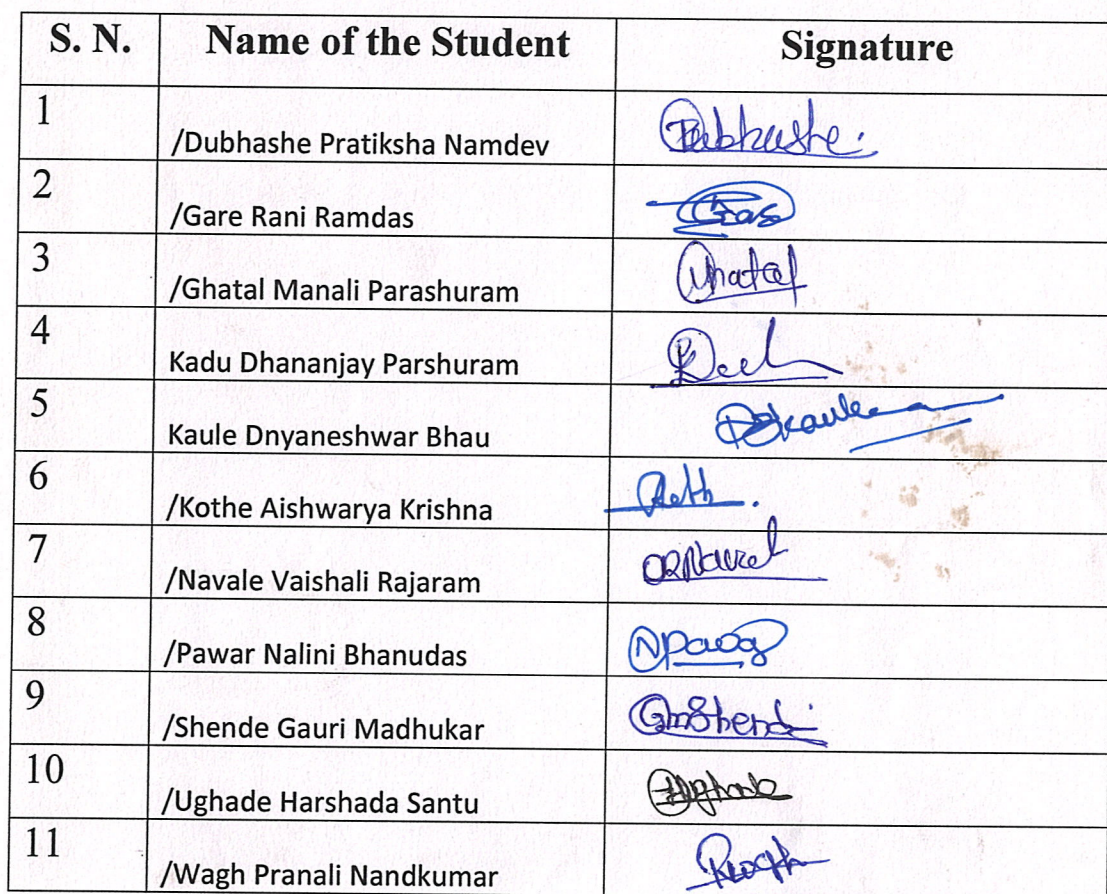 S. N. Name of the Student Signature
1 /Dubhashe Pratiksha Namdev Dubhashe.
2 /Gare Rani Ramdas
3 /Ghatal Manali Parashuram Ghatal
4 Kadu Dhananjay Parshuram
5 Kaule Dnyaneshwar Bhau
6 /Kothe Aishwarya Krishna
7 /Navale Vaishali Rajaram
8 /Pawar Nalini Bhanudas NPawar
9 /Shende Gauri Madhukar GmShende
10 /Ughade Harshada Santu
11 /Wagh Pranali Nandkumar